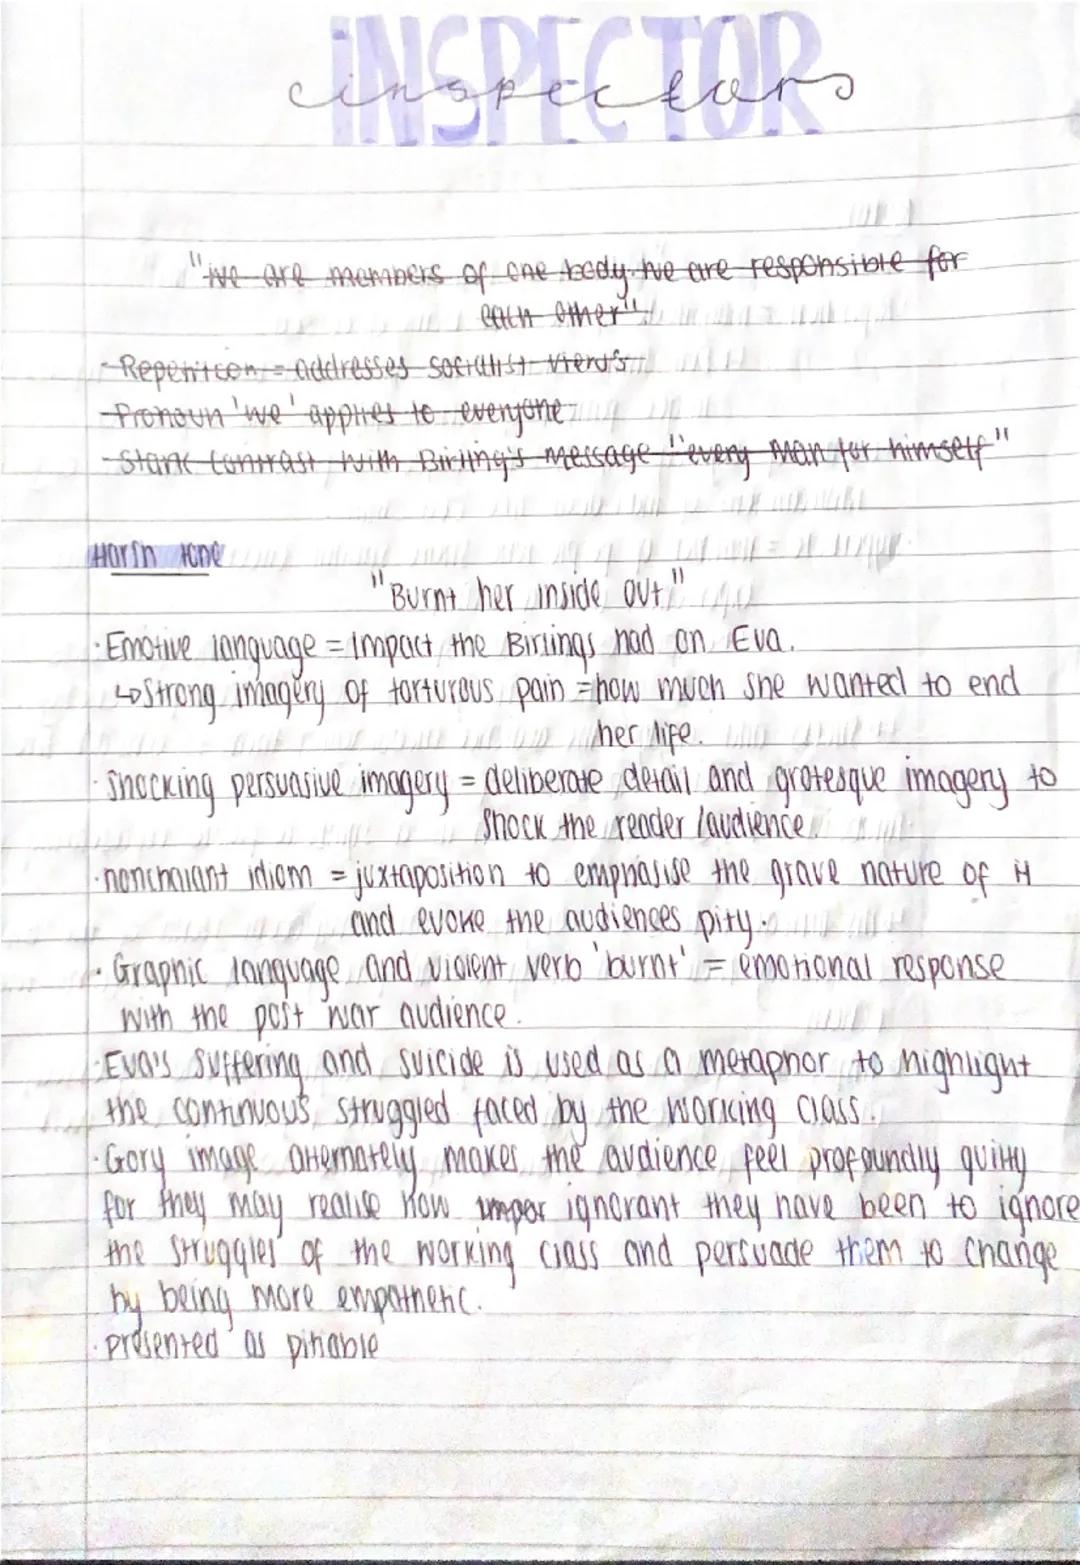 INSPECTOR
inspector
"we are members of one body. we are responsible for
each other"
- Repetition = addresses socialist views
- Pronoun 'we' applies to everyone
- Stark contrast with Birling's message "every man for himself"
Harsh tone
"Burnt her inside out"
· Emotive language = Impact the Birlings had on Eva.
↳ Strong imagery of torturous pain = how much she wanted to end
her life.
· Shocking persuasive imagery = deliberate detail and grotesque imagery to
shock the reader/audience.
· nonchalant idiom = juxtaposition to emphasise the grave nature of it
and evoke the audiences pity.
· Graphic language and violent verb 'burnt' = emotional response
with the post war audience.
· Eva's suffering and suicide is used as a metaphor to highlight
the continuous struggled faced by the working class.
· Gory image alternately makes the audience feel profoundly guilty
for they may realise how ignorant they have been to ignore
the struggles of the working class and persuade them to change
by being more empathetic.
· presented as pitiable